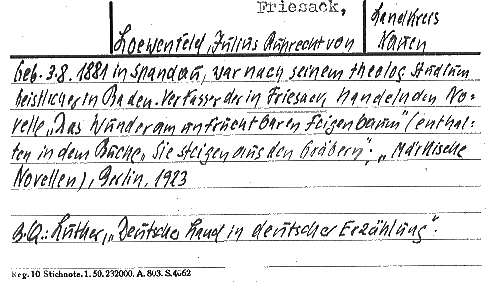 Friesack,
Landkreis
Loewenfeld, Julius Ruprecht von
Nauen
Geb. 3.8. 1881 in Spandau, war nach seinem theolog. Studium
Geistlicher in Baden. Verfasser der in Friesack handelnden No-
velle „Das Wunder am unfruchtbaren Feigenbaum" (enthal-
ten in dem Buche „Sie steigen aus den Gräbern"; „Märkische
Novellen), Berlin, 1923
B.Q.: Luther, „Deutsches Land in deutscher Erzählung".
Reg. 10 Stichnote. 1. 50. 232000. A. 803. S. 4662